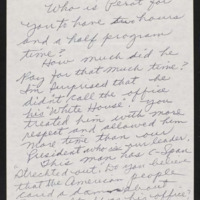 Who is Perot for
you to have two hours
and a half program
time?
How much did he
Pay for that much time?
I'm Surprised that he
didn't call the office
his "White House". You
treated him with more
respect and allowed him
more time than our
President who is our leader.
This man has a Span
Do you believe
that the American people
cared a damn about
his office?